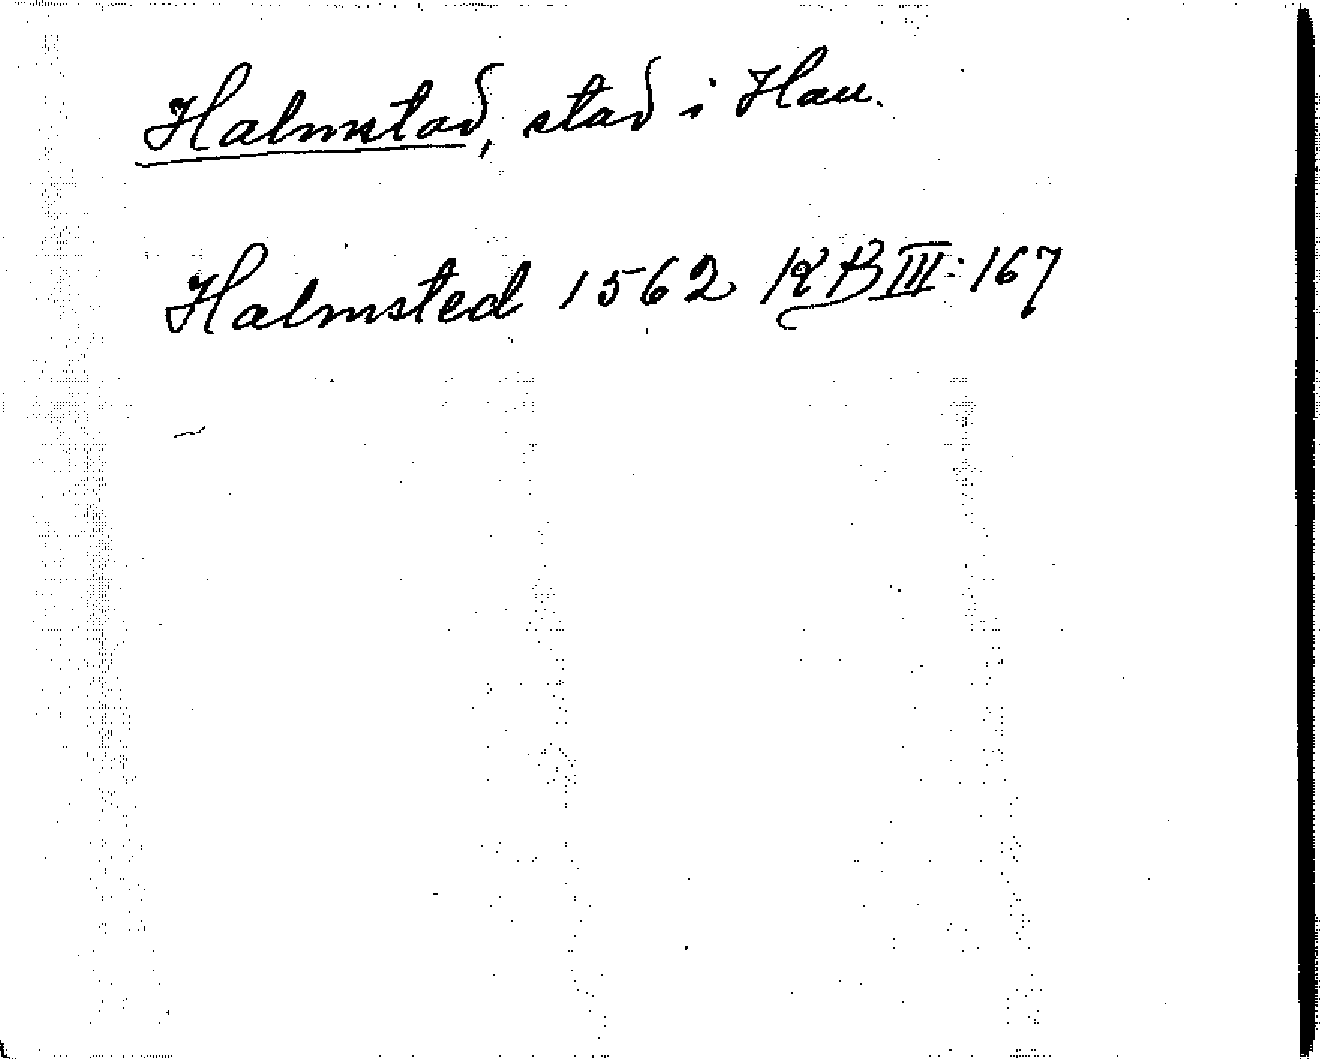 Halmstad, stad i Hall.
Halmsted 1562 KB III: 167